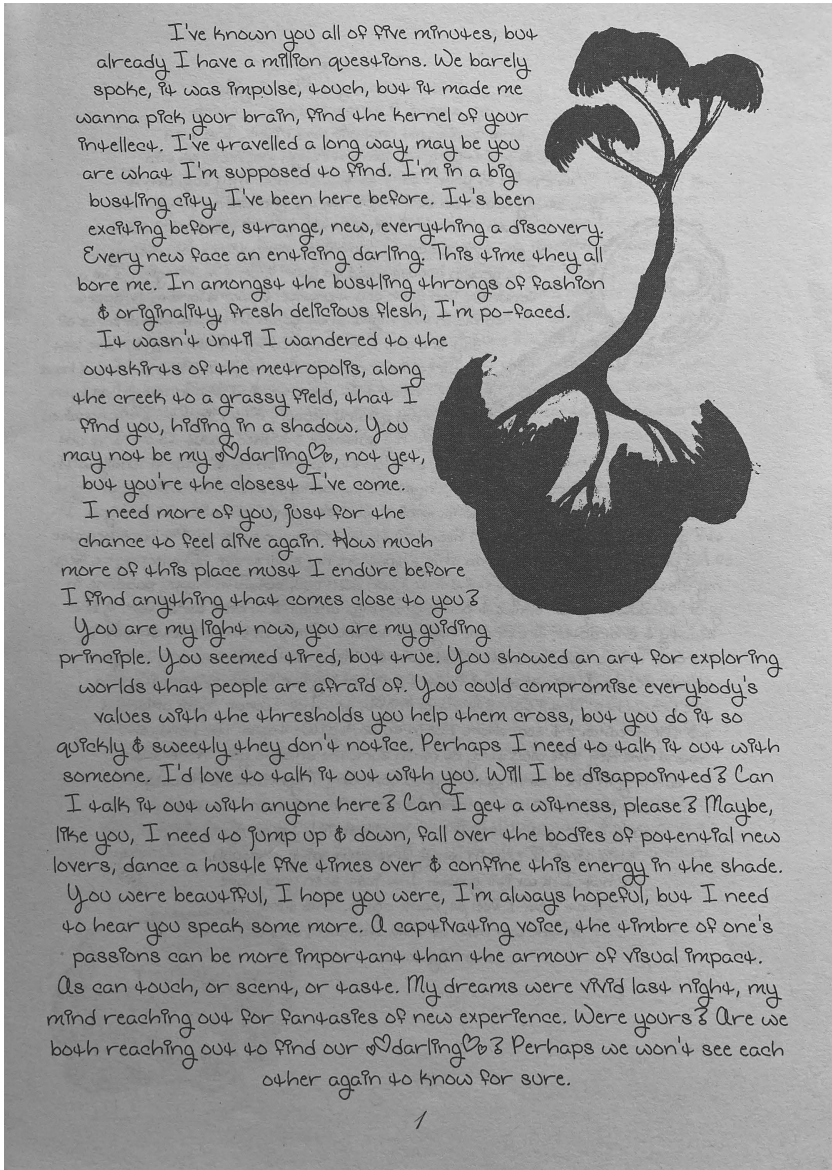 I've known you all of five minutes, but
already I have a million questions. We barely
spoke, it was impulse, touch, but it made me
wanna pick your brain, find the kernel of your
intellect. I've travelled a long way, may be you
are what I'm supposed to find. I'm in a big
bustling city, I've been here before. It's been
exciting before, strange, new, everything a discovery.
Every new face an enticing darling. This time they all
bore me. In amongst the bustling throngs of fashion
& originality, fresh delicious flesh, I'm po-faced.
It wasn't until I wandered to the
outskirts of the metropolis, along
the creek to a grassy field, that I
find you, hiding in a shadow. You
may not be my ♡darling♡, not yet,
but you're the closest I've come.
I need more of you, just for the
chance to feel alive again. How much
more of this place must I endure before
I find anything that comes close to you?
You are my light now, you are my guiding
principle. You seemed tired, but true. You showed an art for exploring
worlds that people are afraid of. You could compromise everybody's
values with the thresholds you help them cross, but you do it so
quickly & sweetly they don't notice. Perhaps I need to talk it out with
someone. I'd love to talk it out with you. Will I be disappointed? Can
I talk it out with anyone here? Can I get a witness, please? Maybe,
like you, I need to jump up & down, fall over the bodies of potential new
lovers, dance a hustle five times over & confine this energy in the shade.
You were beautiful, I hope you were, I'm always hopeful, but I need
to hear you speak some more. A captivating voice, the timbre of one's
passions can be more important than the armour of visual impact.
As can touch, or scent, or taste. My dreams were vivid last night, my
mind reaching out for fantasies of new experience. Were yours? Are we
both reaching out to find our ♡darling♡? Perhaps we won't see each
other again to know for sure.
1